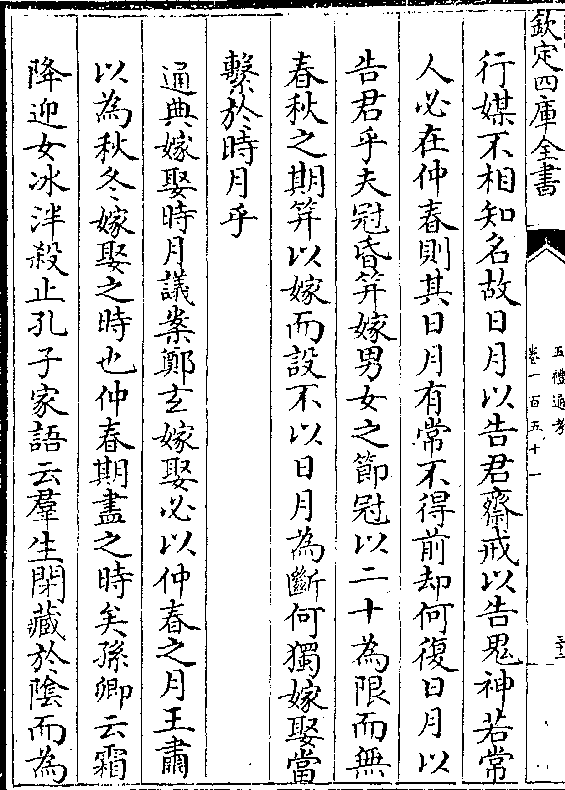 欽定四庫全書
五禮通考
卷一百五十一
三十三
行媒不相知名故日月以告君齋戒以告鬼神若常
人必在仲春則其日月有常不得前却何復日月以
告君乎夫冠昏笄嫁男女之節冠以二十為限而無
春秋之期笄以嫁而設不以日月為斷何獨嫁娶當
繫於時月乎
通典嫁娶時月議案鄭玄嫁娶必以仲春之月王肅
以為秋冬嫁娶之時也仲春期盡之時矣孫卿云霜
降迎女冰泮殺止孔子家語云羣生閉藏於陰而為